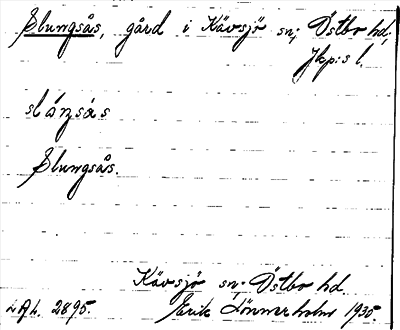 Slungsås, gård i Kävsjö sn; Östbo hd,
Jkp:s l.
sláŋsás
Slungsås.
Kävsjö sn; Östbo hd.
Erik Lönnerholm 1935.
2895.